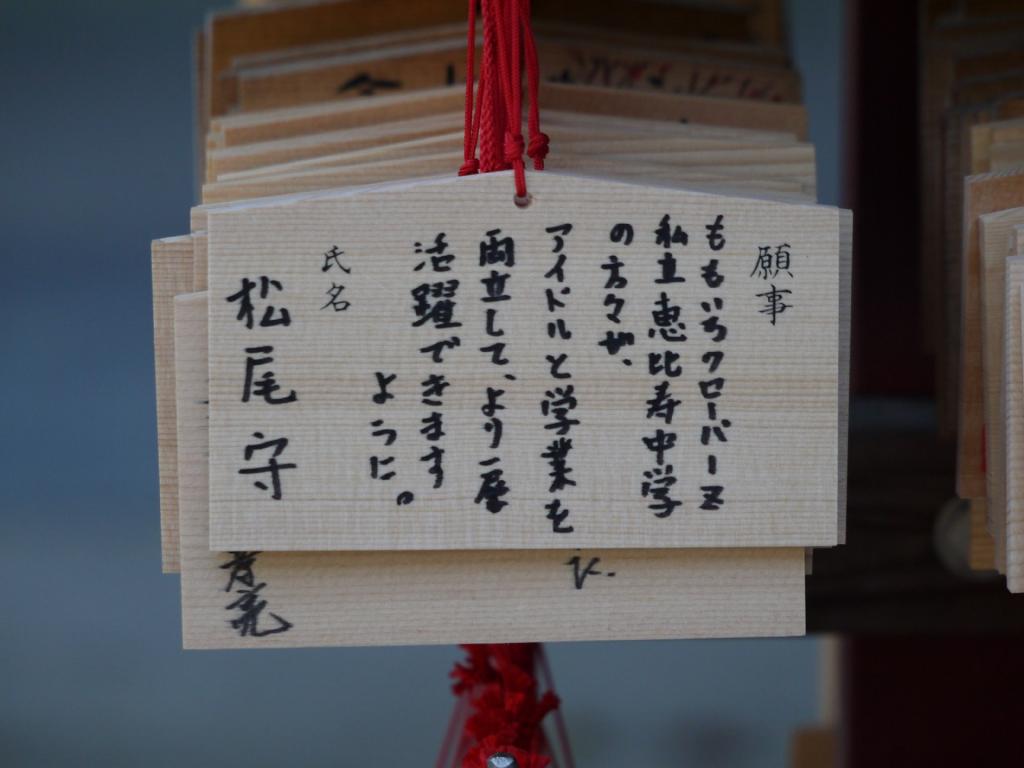 願事
ももいろクローバーZ
私立恵比寿中学
の方々が、
アイドルと学業を
両立して、より一層
活躍できます
ように。
氏名
松尾守